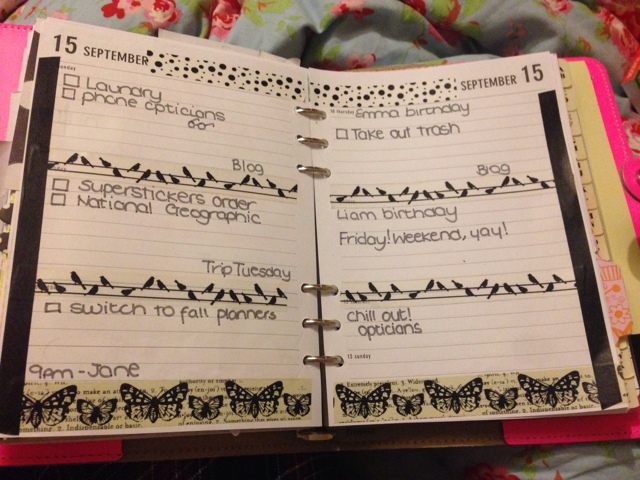 15 SEPTEMBER
Laundry
phone opticians
Blog
Superstickers order
National Geographic
Trip Tuesday
switch to fall planners
9am - Jane
SEPTEMBER 15
Emma birthday
Take out trash
Blog
Liam birthday
Friday! Weekend, yay!
chill out!
opticians
13 sunday